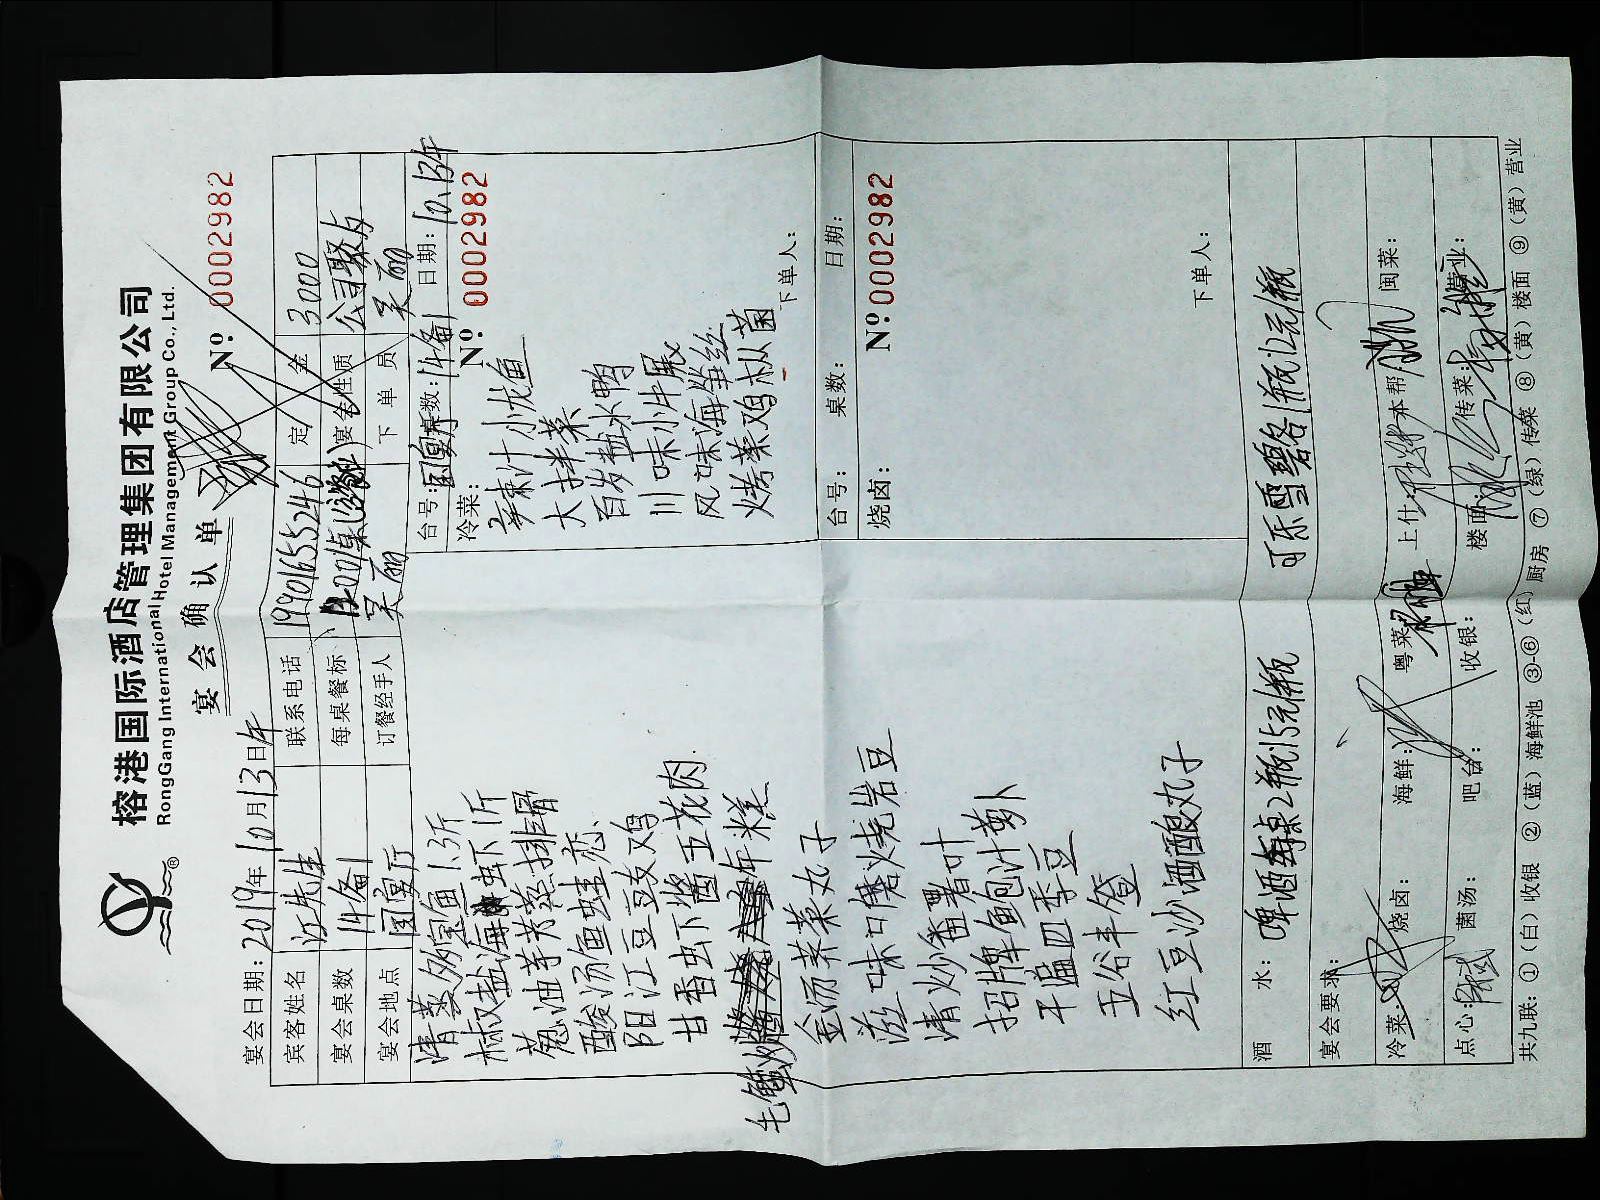 榕港国际酒店管理集团有限公司
RongGang International Hotel Management Group Co., Ltd.
®
宴会确认单
宴会日期：2019年10月13日午
№：0002982
宾客姓名 江先生 联系电话 19901655246 定金 3000
宴会桌数 14备1 每桌餐标 宴会性质 公司聚友
宴会地点 国宴厅 订餐经手人 吴丽 下单员 吴丽
台号：国宴厅 桌数：14备1 日期：10.13午
№ 0002982
清蒸多宝鱼1.3斤
椒盐海虾1斤
葱油芋艿蒸排骨
酸汤鱼蛙恋
阳江豆豉鸡
甘香虫下酱五花肉
毛蟹炒年糕
金汤荠菜丸子
滋味口磨烧岩豆
清炒番署叶
招牌鲍汁萝卜
干煸四季豆
五谷丰登
红豆沙酒酿丸子
冷菜：
辣汁小龙鱼
大拌菜
百岁盐水鸭
川味小牛展
风味海蜇丝
烤菜鸡枞菌
下单人：
台号： 桌数： 日期：
№：0002982
烧卤：
下单人：
酒水：啤酒每桌2瓶15元/瓶 可乐雪碧各1瓶12元/瓶
宴会要求：
冷菜： 烧卤： 海鲜： 粤菜： 上什： 本帮： 闽菜：
点心： 菌汤： 吧台： 收银： 楼面： 传菜： 营业：
共九联：①（白）收银 ②（蓝）海鲜池 ③-⑥（红）厨房 ⑦（绿）传菜 ⑧（黄）楼面 ⑨（黄）营业